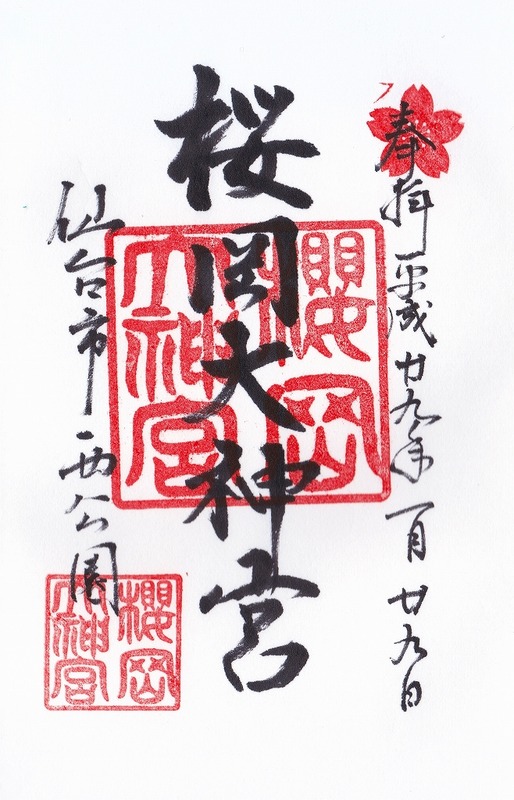 奉拝 平成廿九年一月廿九日
桜岡大神宮
櫻岡大神宮
仙台市西公園
櫻岡大神宮